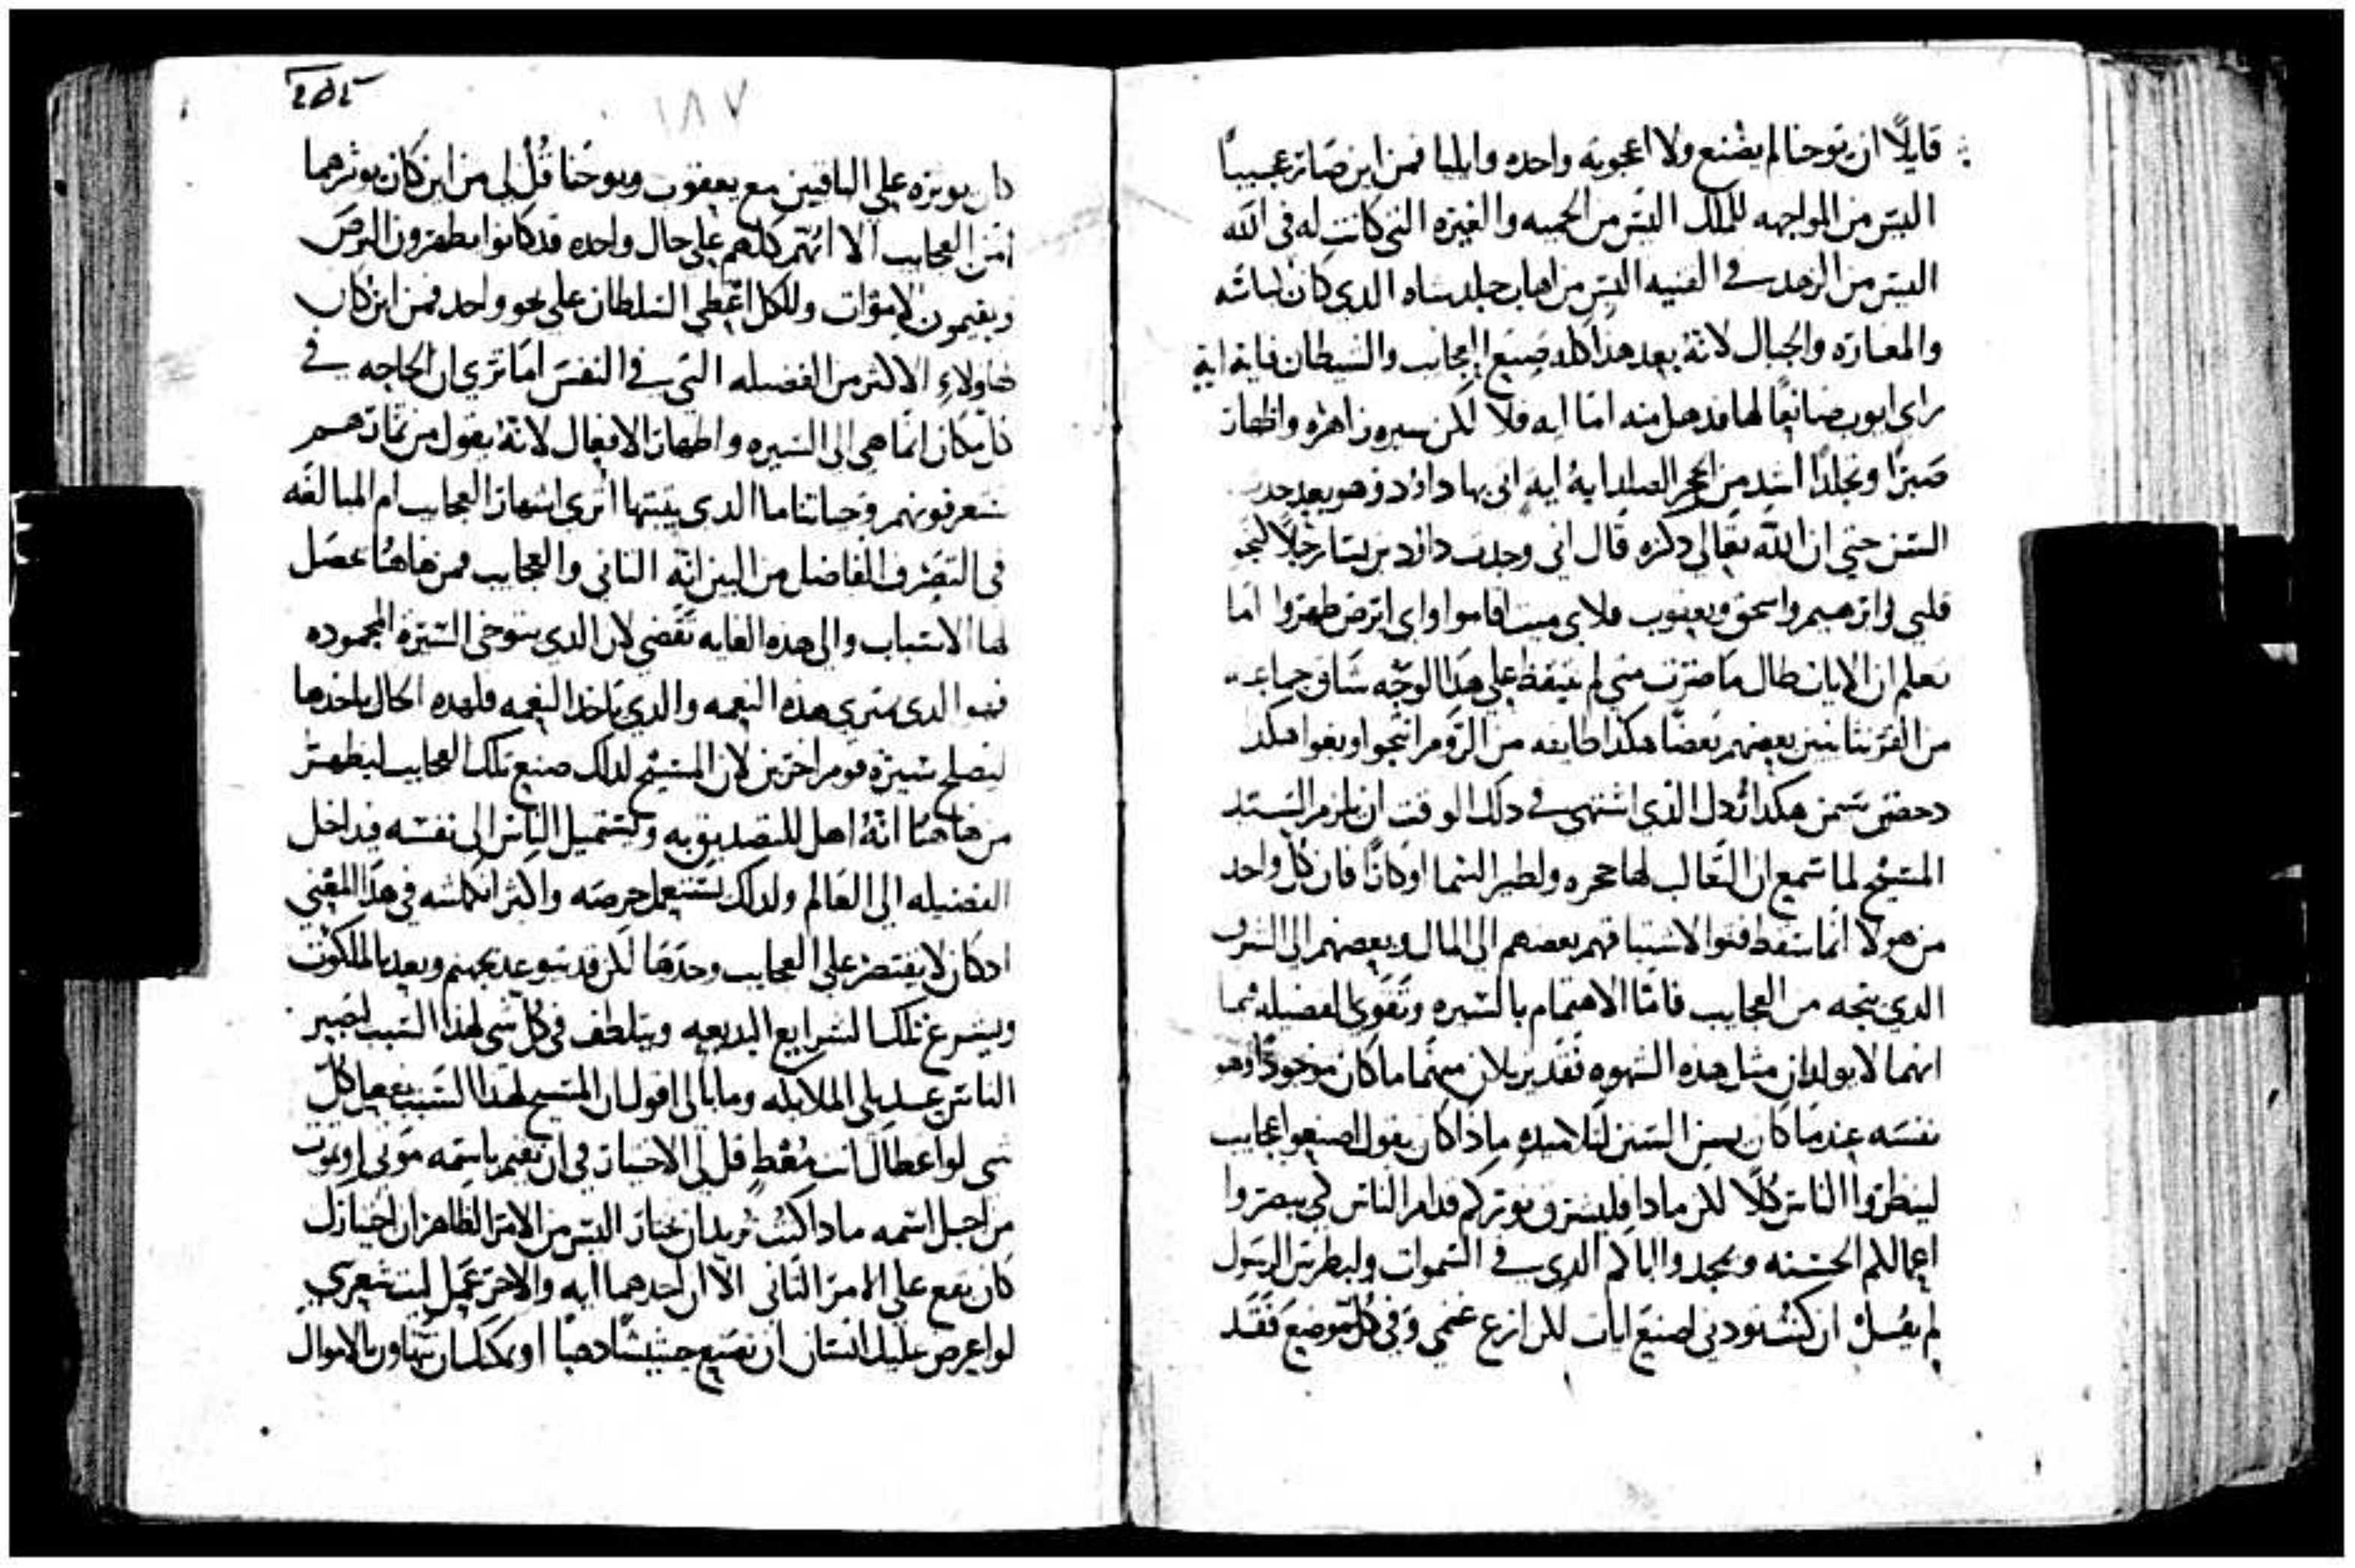 قايلًا ان يوحنا لم يصنع ولا اعجوبه واحده وايليا فمن اين صار عجيبًا
اليس من المواجهه للملك اليس من الحميه والغيره التي كانت له في الله
اليس من الزهد في القنيه اليس من اهاب جلد شاه الدي كان لباسه
والمغاره والجبال لانه بعد هذا كله صنع العجايب والشيطان فاية اية
راي ايوب صانعًا لها فدهل منه اما ايه فلا لكن سيره زاهره واظهار
صبرًا وتجلدًا اشد من الحجر الصلد اية ايه اتي بها داوْد وهو بعد حدث
السن حتي ان الله تعالي دكره قال اني وجدت داوْد بن يسا رجلًا كنحو
قلبي وابرهيم واسحق ويعقوب فلاي ميت اقاموا واي ابرص طهروا اما
تعلم ان الايات طال ما ضرت متي لم نتيقظ علي هذا الوجه شاق جماعه
من القرنتانيين بعضهم بعضًا هكذا طايفه من الروم انتجوا وبغوا هكد
دحض سيمن هكدا رُدل الذي اشتهي في دلك الوقت ان يلزم السيد
المسيح لما سمع ان الثعالب لها جحره ولطير السما اوكارًا فان كل واحد
من هولا انما سقط فتوا الاشيا فهم بعضهم الي المال وبعضهم الي الشرف
الدي يتجه من العجايب فاما الاهتمام بالسيره وتقوي الفضيله فما
انهما لا يولدان مثل هذه الشهوه تقدير بلان مهما ما كان موجودًا وهو
نفسه عندما كان يسن السنن لتلاميده ماذا كان يقول اصنعوا عجايب
لينظروا الناس كلا لكن مادا فليشرق نوركم قدام الناس لكي يبصروا
اعمالكم الحسنه ويمجدوا اباكم الدي في السموات ولبطرس الرسول
لم يقل ان كنت تودني اصنع ايات لكن ارع غنمي وفي كل موضع فقد
٢٥٤
١٨٧
كان يوبره علي الباقين مع يعقوب ويوحنا قُل لي من اين كان يوثرهما
أمن العجايب الا انهم كلهم علي حال واحده قد كانوا يطهرون البرص
ويقيمون الاموات وللكل اعطي السلطان علي نحو واحد فمن اين كان
لهاولاء الاكثر من الفضيله التي في النفس اما تري ان الحاجه في
كل مكان انما هي الي السيره واظهار الافعال لانه يقول من ثمارهم
تعرفونهم وحياتنا ما الدي يثبتها اتري اشهار العجايب ام المبالغه
في التصرف الفاضل من البين انه الثاني والعجايب فمن هاهنا تحصل
لها الاسباب والي هده الغايه تقضي لان الدي يتوخي السيرة المحموده
فهو الدي يمتري هده النعمه والدي ياخد النعمه فلهده الحال ياخدها
ليصلح سيرة قوم اخرين لان المسيح لدلك صنع تلك العجايب ليظهر
من هاهنا انه اهل للتصديق به وليستميل الناس الي نفسه فيداخل
الفضيله الي العالم ولدلك يستعمل حرصه واكثر انكماشه في هذا المعني
ادكان لا يقتصر علي العجايب وحدها لكن قد يتوعد بجهنم ويعد بالملكوت
ويشرع تلك الشرايع البديعه ويتلطف في كل شي لهذا السبب ليصير
الناس عديلي الملايكه وما بالي اقول ان المسيح لهذا السبب عمل كل
شي لو اعطاك انت معط قل لي الاختيار في ان تقيم باسمه موتي او تموت
من اجل اسمه مادا كنت تريد ان تختار اليس من الامر الظاهر ان اختيارك
كان يقع علي الامر الثاني الا ان احدهما ايه والاخر عمل ليت شعري
لو اعرض عليك انسان ان تصنع حشيشًا دهبًا او يمكنك ان تتهاون بالاموال